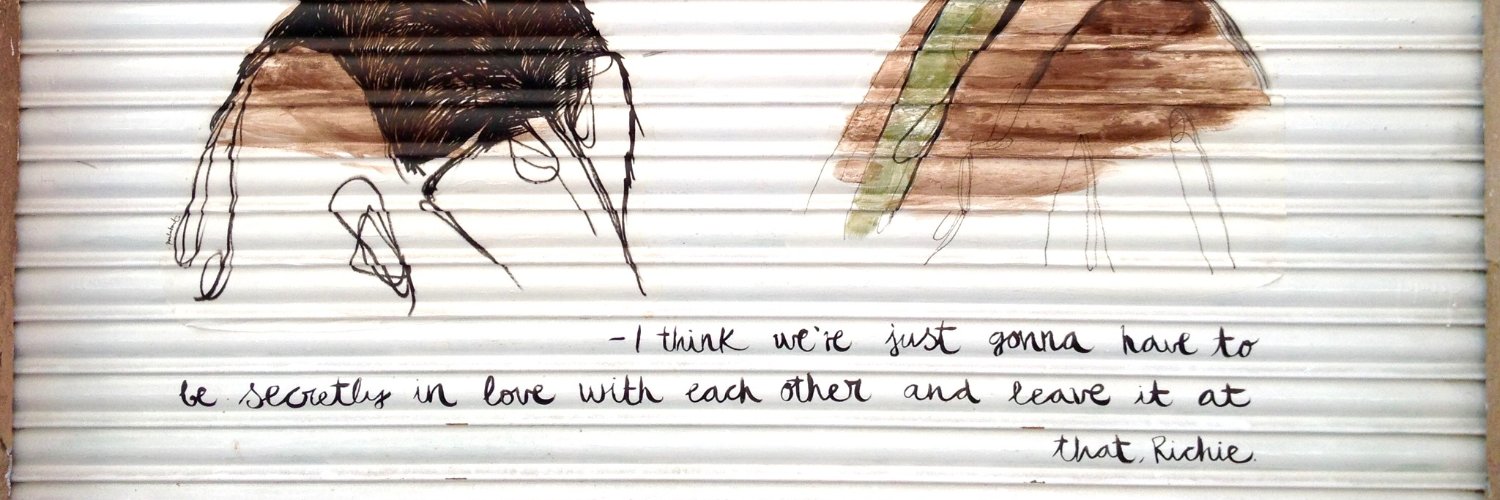 -I think we're just gonna have to
be secretly in love with each other and leave it at
that, Richie.